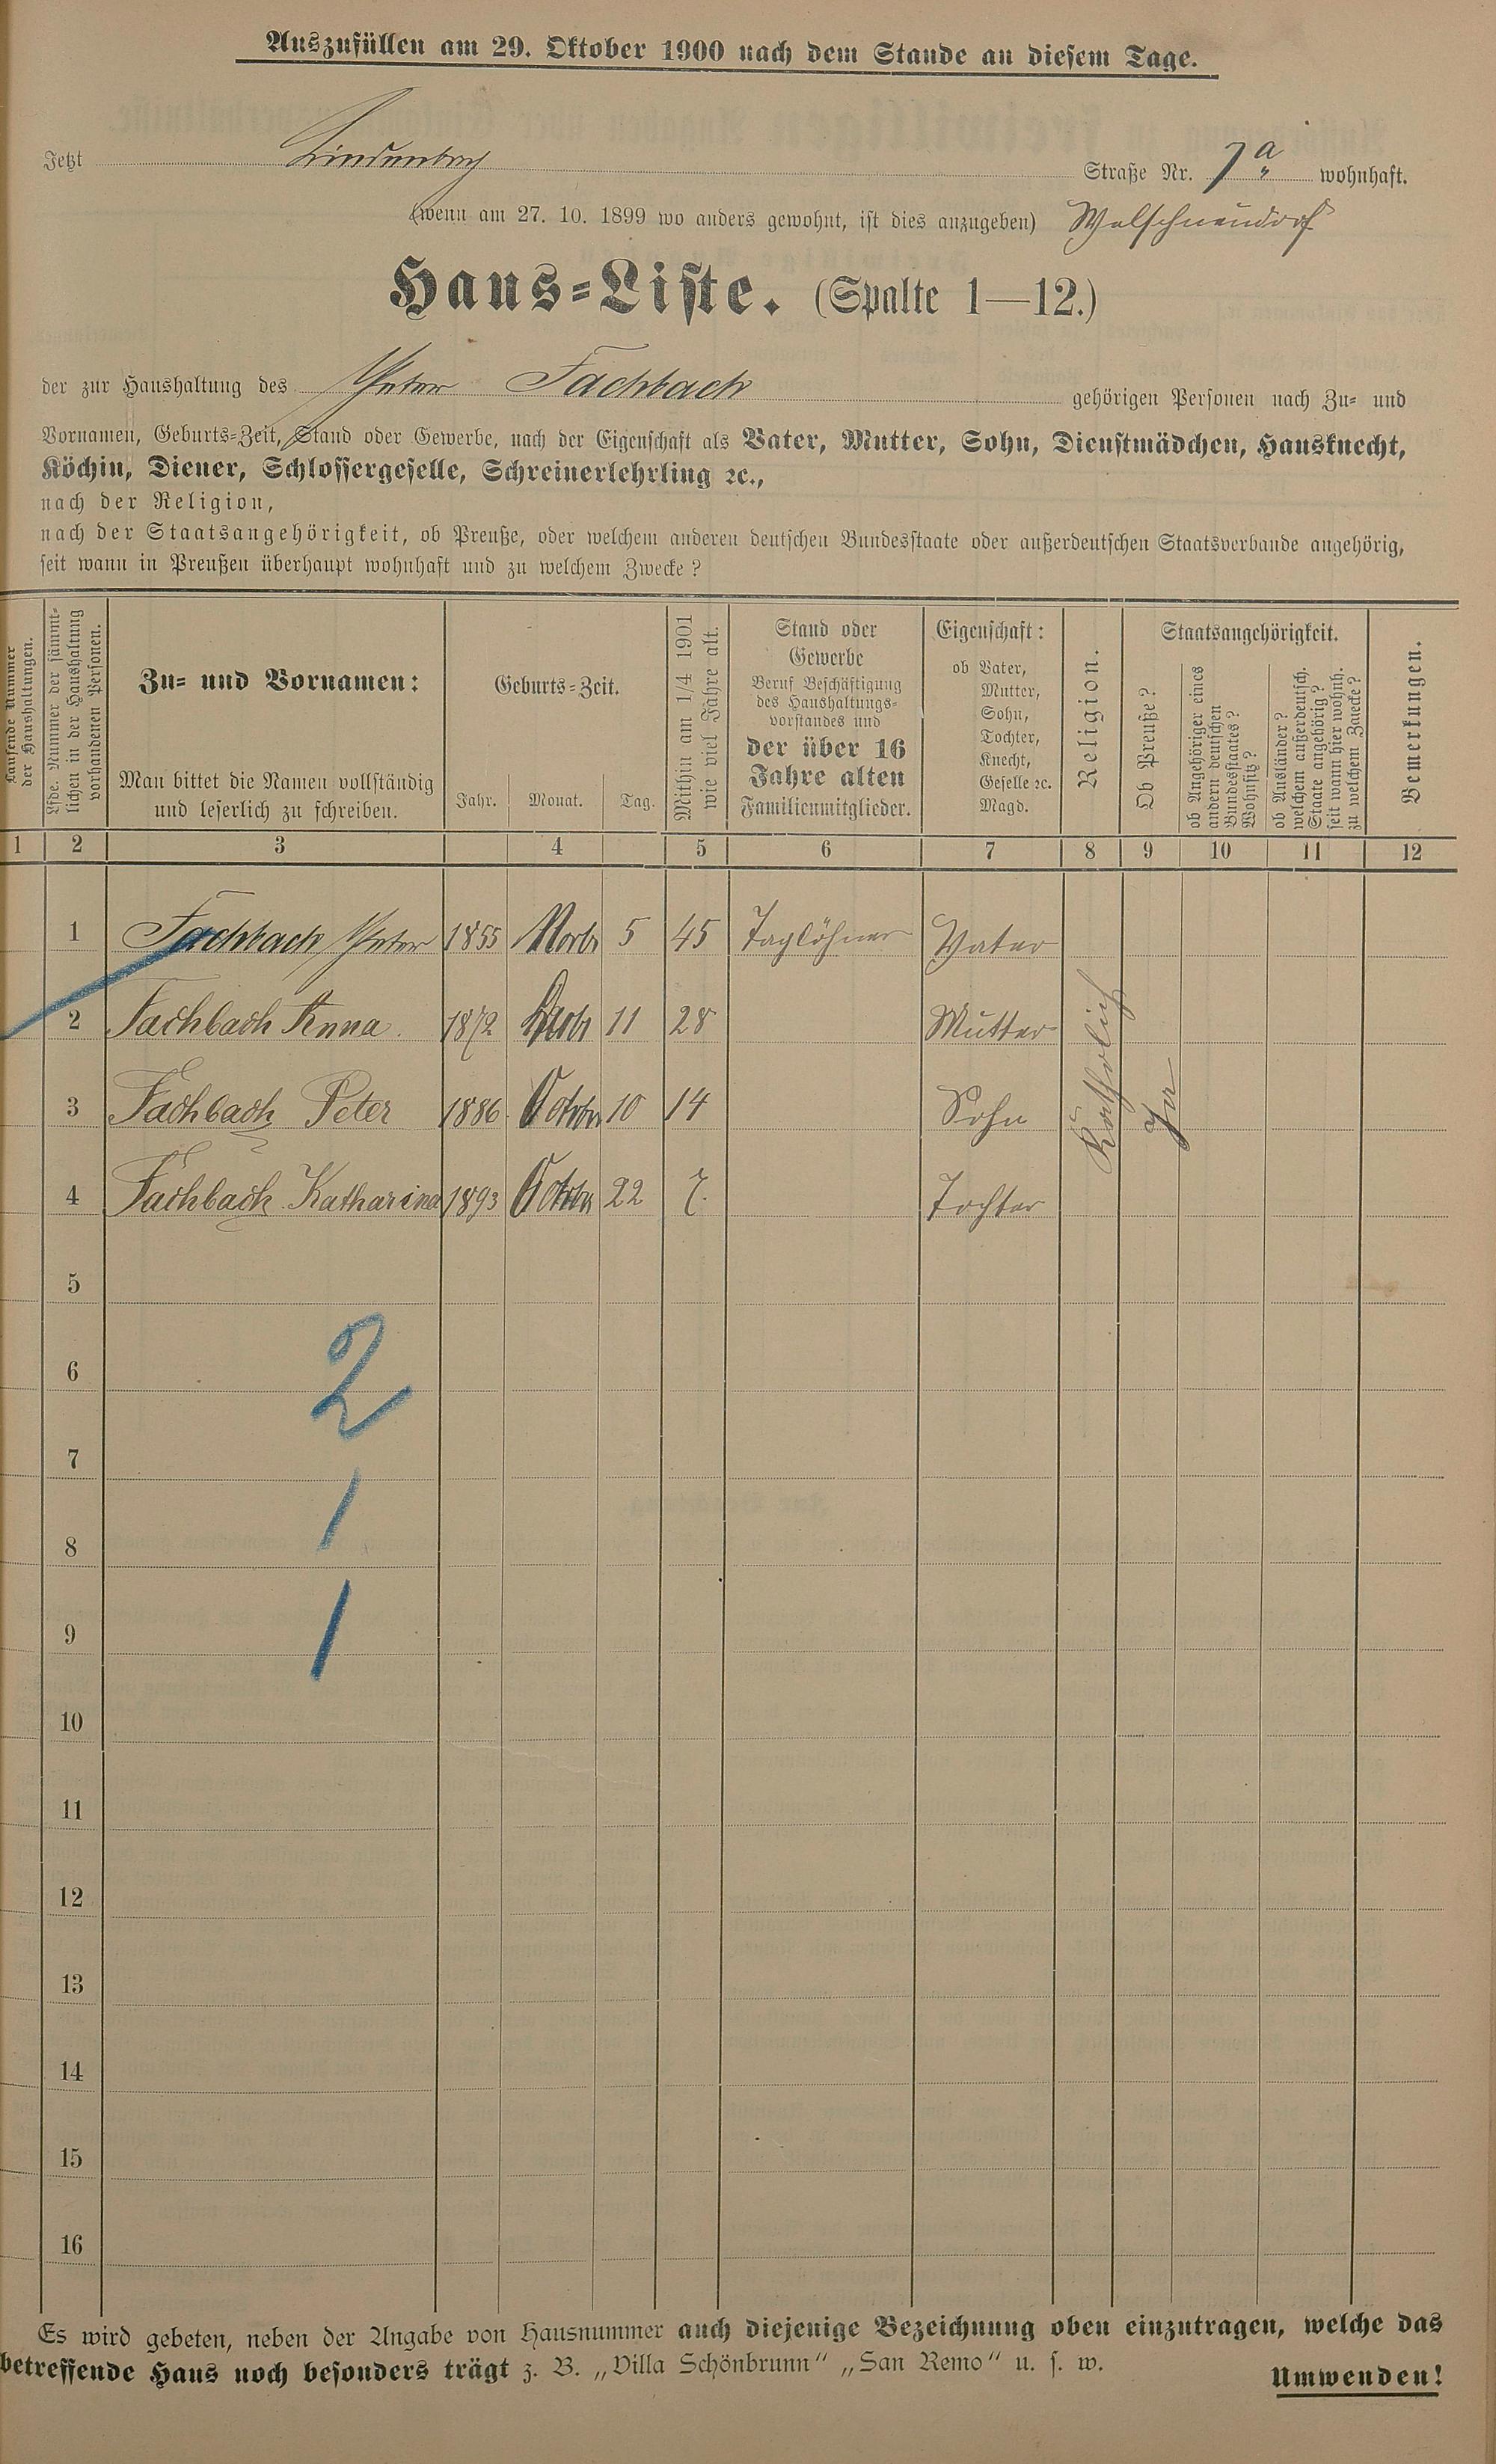 Auszufüllen am 29. Oktober 1900 nach dem Stande an diesem Tage.
Jetzt Lindenbach Straße Nr. 7a wohnhaft.
(wenn am 27. 10. 1899 wo anders gewohnt, ist dies anzugeben) Welschneudorf
Haus-Liste. (Spalte 1—12.)
der zur Haushaltung des Peter Fachbach gehörigen Personen nach Zu- und
Vornamen, Geburts-Zeit, Stand oder Gewerbe, nach der Eigenschaft als Vater, Mutter, Sohn, Dienstmädchen, Hausknecht,
Köchin, Diener, Schlossergeselle, Schreinerlehrling ꝛc.,
nach der Religion,
nach der Staatsangehörigkeit, ob Preuße, oder welchem anderen deutschen Bundesstaate oder außerdeutschen Staatsverbande angehörig,
seit wann in Preußen überhaupt wohnhaft und zu welchem Zwecke?
Laufende Nummer
der Haushaltungen.
Lfde. Nummer der sämmt-
lichen in der Haushaltung
vorhandenen Personen.
Zu- und Vornamen:
Man bittet die Namen vollständig
und leserlich zu schreiben.
Geburts-Zeit.
Jahr. Monat. Tag.
Mithin am 1/4 1901
wie viel Jahre alt.
Stand oder
Gewerbe
Beruf Beschäftigung
des Haushaltungs-
vorstandes und
der über 16
Jahre alten
Familienmitglieder.
Eigenschaft:
ob Vater,
Mutter,
Sohn,
Tochter,
Knecht,
Geselle ꝛc.
Magd.
Religion.
Staatsangehörigkeit.
Ob Preuße?
ob Angehöriger eines
andern deutschen
Bundesstaates?
Wohnsitz?
ob Ausländer?
welchem außerdeutsch.
Staate angehörig?
seit wann hier wohnh.
zu welchem Zwecke?
Bemerkungen.
1 2 3 4 5 6 7 8 9 10 11 12
1 Fachbach Peter 1855 Novbr 5 45 Taglöhner Vater
2 Fachbach Anna 1872 11 28 Mutter
3 Fachbach Peter 1886 Octobr 10 14 Sohn
4 Fachbach Katharina 1893 Octobr 22 7. Tochter
Katholich
Ja
5
6
2
7
1
8
1
9
10
11
12
13
14
15
16
Es wird gebeten, neben der Angabe von Hausnummer auch diejenige Bezeichnung oben einzutragen, welche das
betreffende Haus noch besonders trägt z. B. „Villa Schönbrunn“ „San Remo“ u. s. w.
Umwenden!